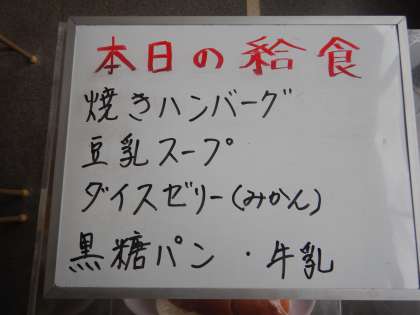 本日の給食
焼きハンバーグ
豆乳スープ
ダイスゼリー(みかん)
黒糖パン・牛乳